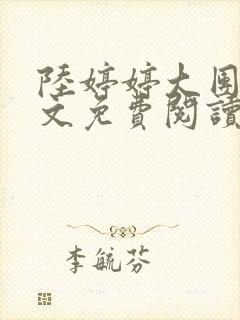 陸婷婷大圍
文免費閱讀
李毓芬